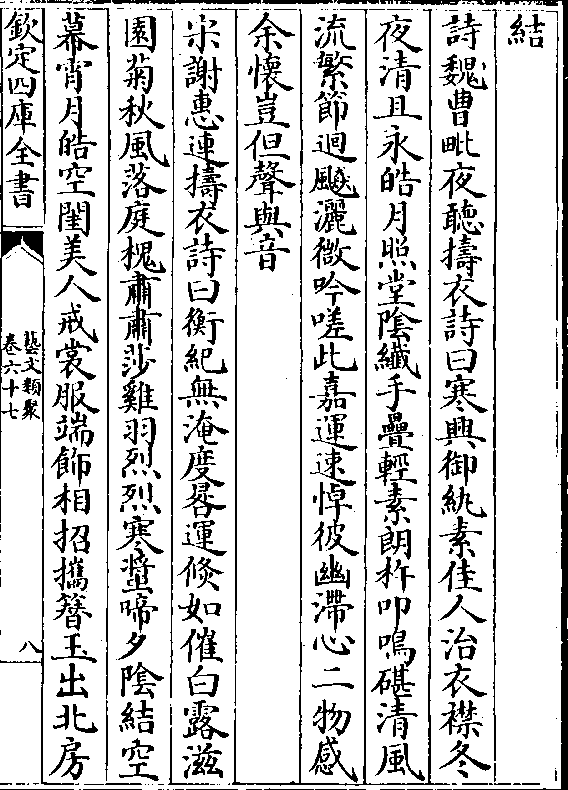 結
詩魏曹毗夜聽擣衣詩曰寒興御紈素佳人治衣襟冬
夜清且永皓月照堂陰纖手疊輕素朗杵叩鳴碪清風
流繁節迴飇灑微吟嗟此嘉運速悼彼幽滯心二物感
余懷豈但聲與音
宋謝惠連擣衣詩曰衡紀無淹度晷運倐如催白露滋
園菊秋風落庭槐肅肅莎雞羽烈烈寒螿啼夕陰結空
幕宵月皓空閨美人戒裳服端飾相招攜簮玉出北房
欽定四庫全書
藝文類聚
卷六十七
八